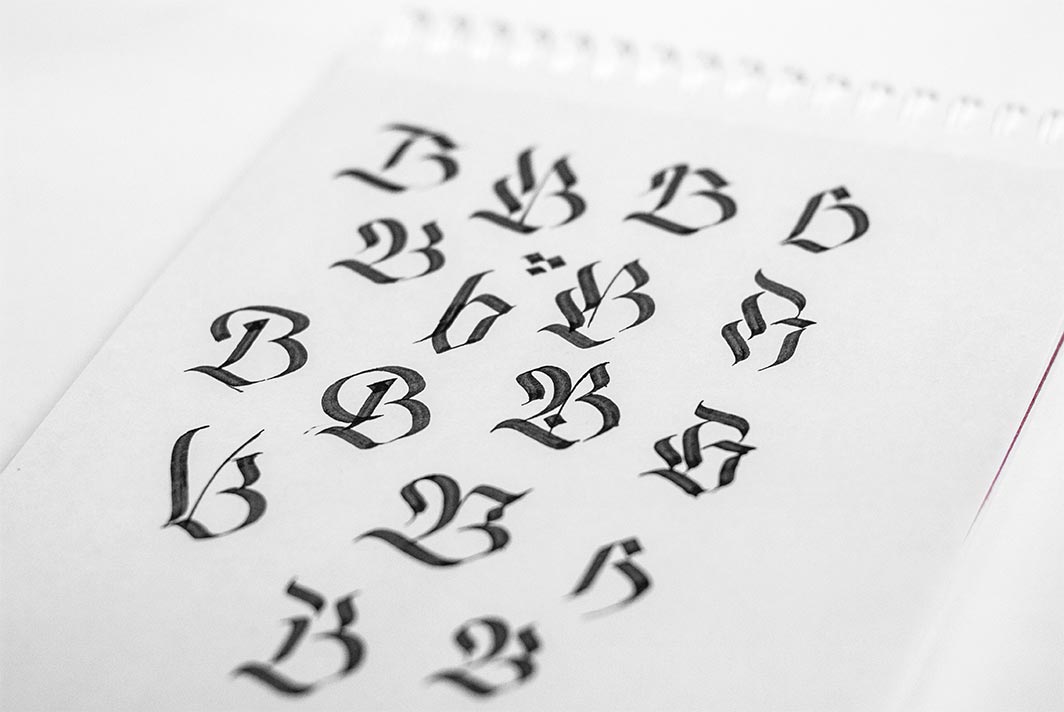 B B B B
B b B B
B B B B
B B B
B B